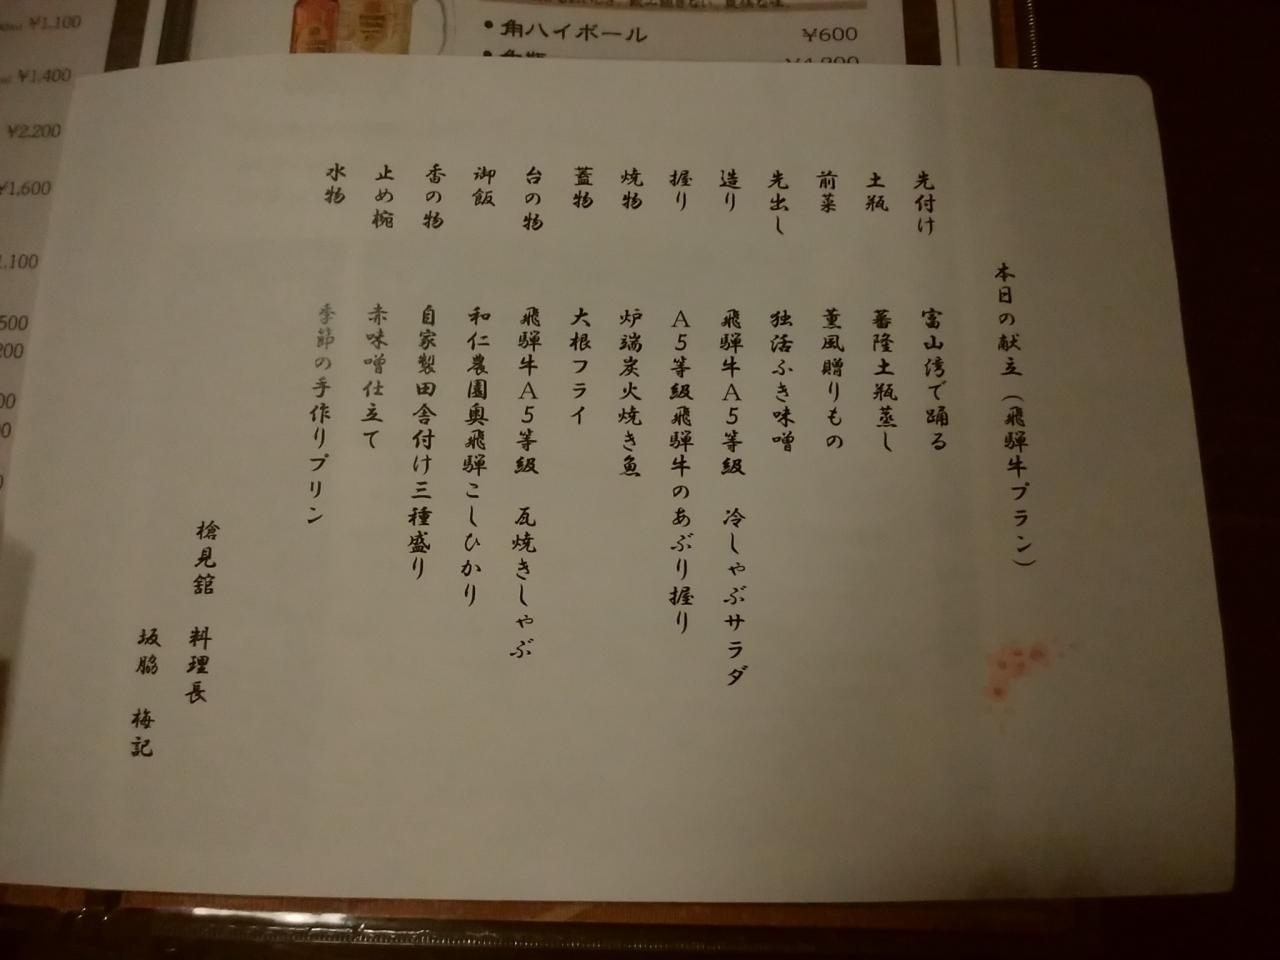 本日の献立（飛騨牛プラン）
先付け　富山湾で踊る
土瓶　蕃隆土瓶蒸し
前菜　薫風贈りもの
先出し　独活ふき味噌
造り　飛騨牛A5等級　冷しゃぶサラダ
握り　A5等級飛騨牛のあぶり握り
焼物　炉端炭火焼き魚
蓋物　大根フライ
台の物　飛騨牛A5等級　瓦焼きしゃぶ
御飯　和仁農園奥飛騨こしひかり
香の物　自家製田舎付け三種盛り
止め椀　赤味噌仕立て
水物　季節の手作りプリン
槍見舘　料理長
坂脇　梅記
•角ハイボール　¥600
¥1.100
¥1.400
¥2.200
¥1.600